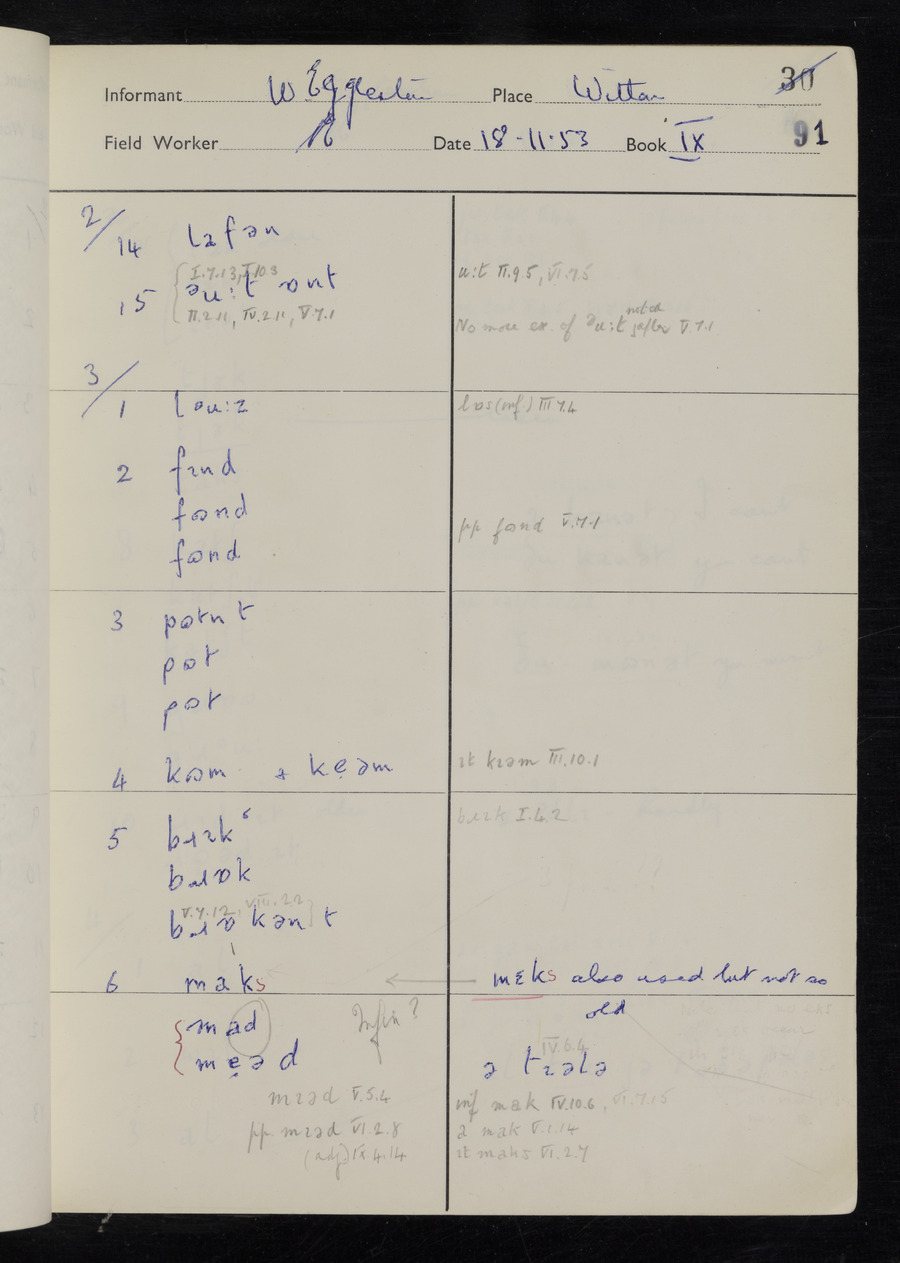 Informant W Eggleston Place Witton 30
Field Worker Date 18-11-53 Book IX 91
2/
14 lafən
I.7.13, I.10.3
15 əu:t ɒut u:t II.9.5, VI.7.5
II.2.11, IV.2.11, V.7.1
No more ex. of əu:t noted after V.7.1
3/
1 lɒu:z lɒs (inf.) III.7.4
2 fɪnd
fɷnd
fɷnd pp fɷnd V.7.1
3 pɷtn t
pɷt
pɷt
4 kɷm + kẹəm ɪt kɪəm III.10.1
5 bɹɪkˁ bɹɪk I.6.2
bɹɒk
V.7.12, VIII.2.2
bɹɒkən t
6 maks mɛks also used but not so
old
mad Infin?
mẹəd IV.6.4
ə tɪələ
mɪəd V.5.4 inf mak IV.10.6, VI.7.15
pp. mɪəd VI.2.8 ə mak V.1.14
(adj) IX.4.14 ɪt maks VI.2.7